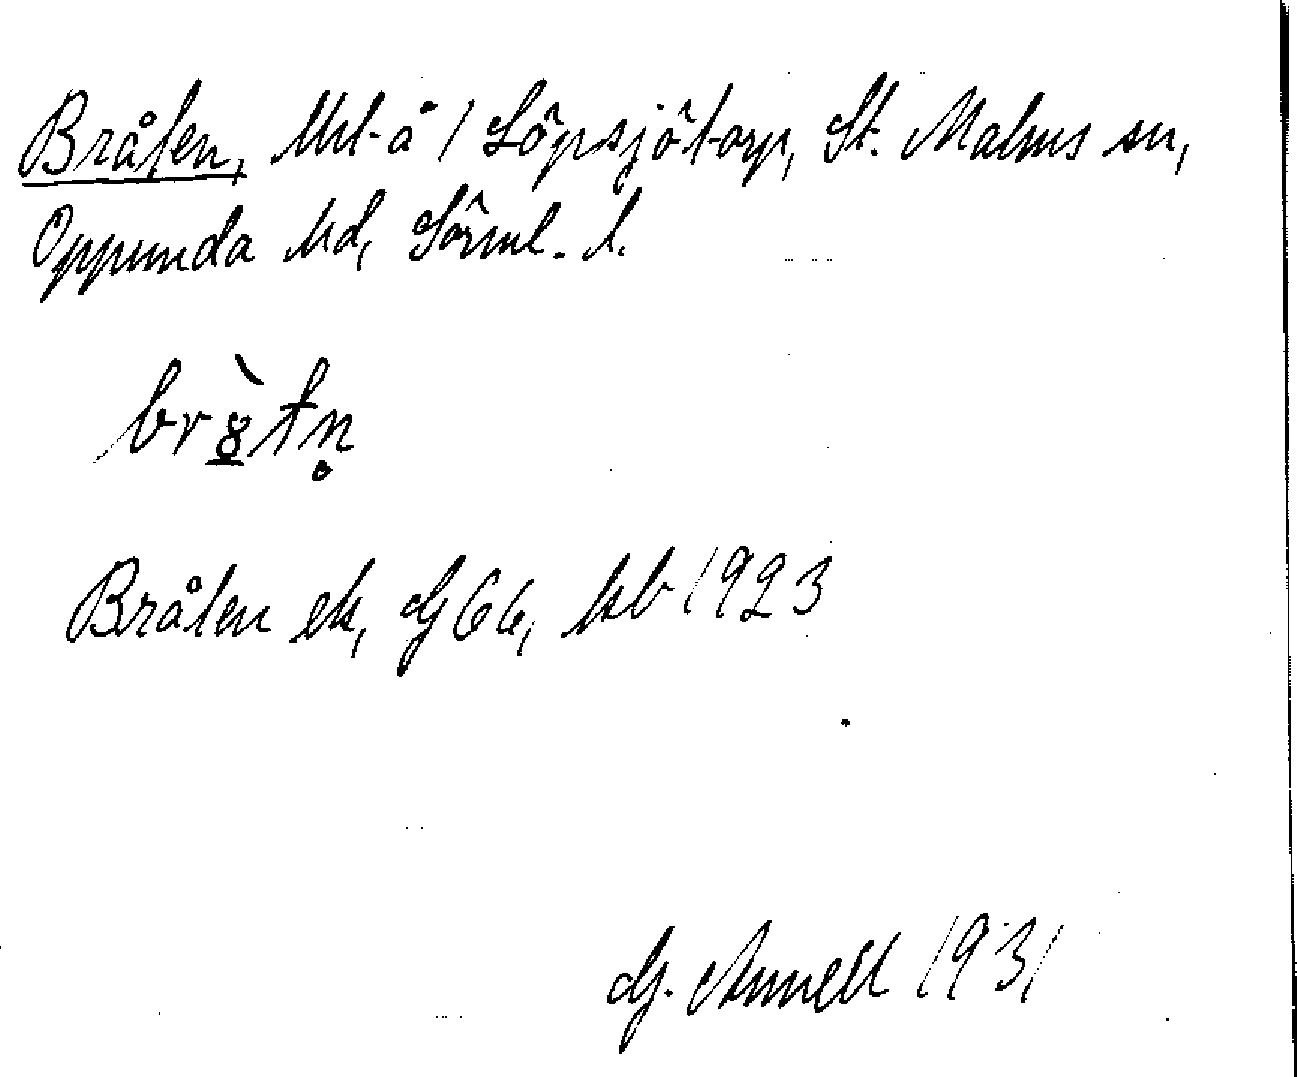 Bråten, lht å Löpsjötorp, St. Malms sn,
Oppunda hd, Sörml. l.
br8̲̀tn̥
Bråten ek, G66, kb 1923
G. Annell 1931